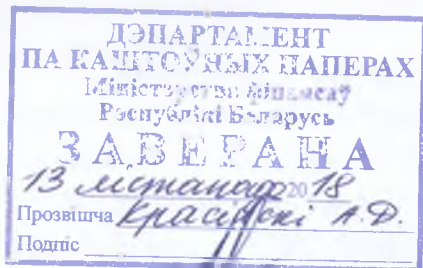 ДЭПАРТАМЕНТ
ПА КАШТОЎНЫХ ПАПЕРАХ
Міністэрства фінансаў
Рэспублікі Беларусь
ЗАВЕРАНА
13 лістапада 2018
Прозвішча А.Д.
Подпіс